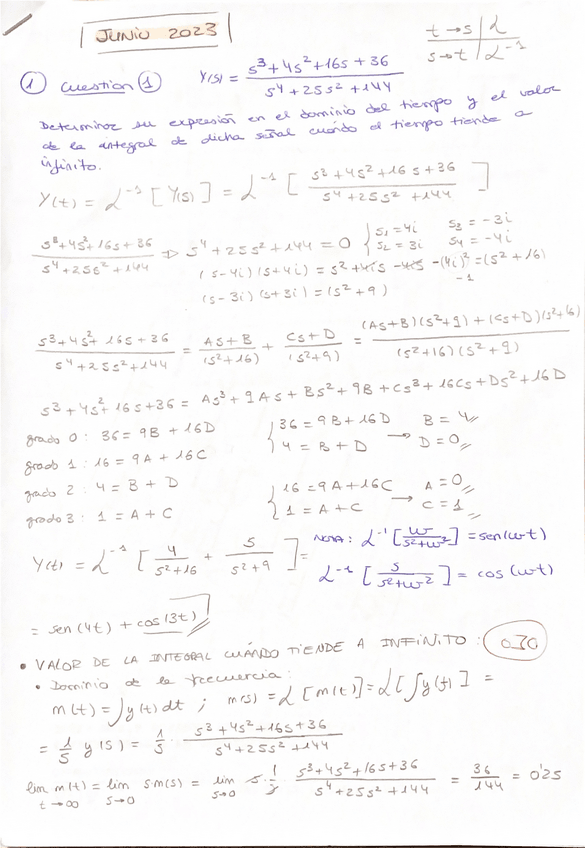 JUNIO 2023
t → s | L
s → t | L⁻¹
① Cuestión ① Y(s) = (s³+4s²+16s+36)/(s⁴+25s²+144)
Determinar su expresión en el dominio del tiempo y el valor
de la integral de dicha señal cuando el tiempo tiende a
infinito.
Y(t) = L⁻¹ [Y(s)] = L⁻¹ [ (s³+4s²+16s+36)/(s⁴+25s²+144) ]
(s³+4s²+16s+36)/(s⁴+25s²+144) ⇒ s⁴+25s²+144=0 { s₁=4i s₃=-3i
s₂=3i s₄=-4i
(s-4i)(s+4i) = s²+4is-4is-(4i)² = (s²+16)
-1
(s-3i)(s+3i) = (s²+9)
(s³+4s²+16s+36)/(s⁴+25s²+144) = (As+B)/(s²+16) + (Cs+D)/(s²+9) = ((As+B)(s²+9)+(Cs+D)(s²+16))/((s²+16)(s²+9))
s³+4s²+16s+36 = As³+9As+Bs²+9B+Cs³+16Cs+Ds²+16D
grado 0: 36=9B+16D { 36=9B+16D B=4
grado 1: 16=9A+16C 4=B+D → D=0
grado 2: 4=B+D { 16=9A+16C A=0
grado 3: 1=A+C 1=A+C → C=1
Y(t) = L⁻¹ [ 4/(s²+16) + s/(s²+9) ] = NOTA: L⁻¹ [ w/(s²+w²) ] = sen(wt)
L⁻¹ [ s/(s²+w²) ] = cos(wt)
= sen(4t) + cos(3t)
• VALOR DE LA INTEGRAL CUÁNDO TIENDE A INFINITO: 0.30
• Dominio de la frecuencia:
m(t) = ∫y(t)dt ; m(s) = L[m(t)] = L[∫y(t)] =
= 1/s y(s) = 1/s · (s³+4s²+16s+36)/(s⁴+25s²+144)
lim m(t) = lim s·m(s) = lim s·1/s · (s³+4s²+16s+36)/(s⁴+25s²+144) = 36/144 = 0'25
t→∞ s→0 s→0